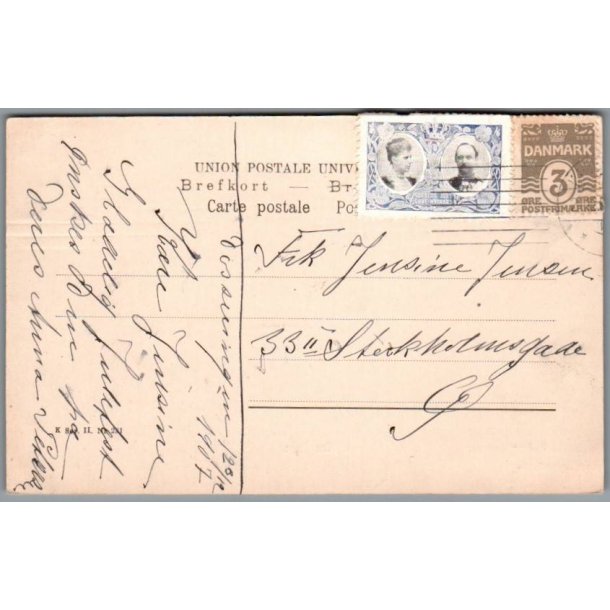 UNION POSTALE UNIV
Brefkort — Br
Carte postale Pos
DANMARK
3
ØRE ØRE
POSTFRIMÆRKE
Frk Jensine Jensen
33 II Stockholmsgade
Ø
23/12
1907
Kære Jensine
Glædelig Julefest
Ønskes Dine fra
Deres Anna
K
II. No.